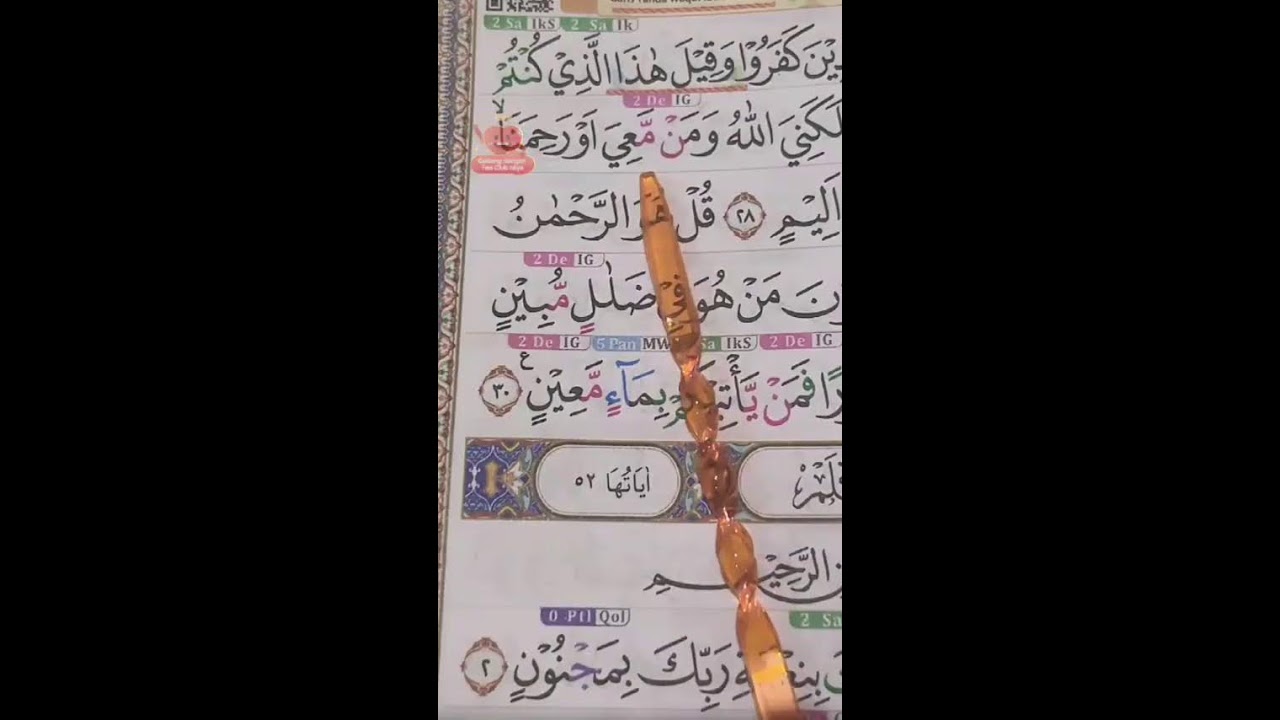 2 Sa IkS 2 Sa Ik
كَفَرُوْا وَقِيْلَ هٰذَا الَّذِيْ كُنْتُمْ
2 De IG
اللّٰهُ وَمَنْ مَّعِيَ اَوْ رَحِمَنَاۙ
اَلِيْمٍ ٢٨ قُلْ هُوَ الرَّحْمٰنُ
2 De IG
مَنْ هُوَ فِيْ ضَلٰلٍ مُّبِيْنٍ
2 De IG 5 Pan MW Sa IkS 2 De IG
فَمَنْ يَّأْتِيْكُمْ بِمَاۤءٍ مَّعِيْنٍ ࣖ ٣٠
اٰيَاتُهَا ٥٢
الرَّحِيْمِ
0 Ptl Qol 2 Sa
بِنِعْمَةِ رَبِّكَ بِمَجْنُوْنٍ ٢